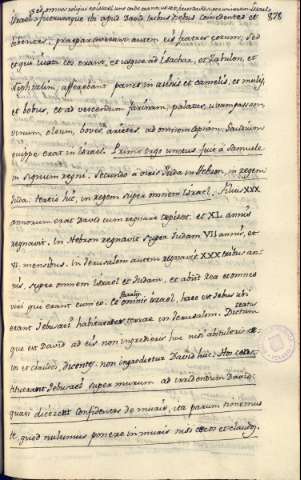 sed omnes reliqui ex Israel uno corde erant, ut rex
Israel. fueruntque ibi apud David tribus diebus comedentes et
bibentes, praeparaverant autem eis fratres eorum, sed
et qui iuxta eos erant, et usque ad Isachar, et Zabulon, et
Nephtalim, afferebant panes in asinis et camelis, et mulis,
et bobus, et ad vescendum farinam, palatas, uvam passam
vinum, oleum, boves, arietes, ad omnem copiam. Gaudium
quippe erat in Israel. Primo ergo unctus fuit à Samuele
in signum regni. Secundo à viris Juda in Hebron, in regem
Juda. tertiò hic, in regem super omnem Israel. Filius XXX
annorum erat David cum regnare cepisset, et XL annis
regnavit. In Hebron regnavit super Judam VII annis, et
VI. mensibus. In Jerusalem autem regnavit XXX tribus an-
nis, super omnem Israel et Judam, et abiit rex et omnes
viri qui erant cum eo. et omnis Israel, haec est Jebus ubi
erant Jebusaei habitatores terrae in Jerusalem. Dictum
que est David ab eis non ingredieris huc nisi abstuleris
et claudos, dicentes, non ingredietur David huc.
Jebusaei super murum ad irridendum David,
quasi dicerent confidentes de muris, ita parum timemus
te, quod nolumus ponere in muris nisi cecos et claudos,